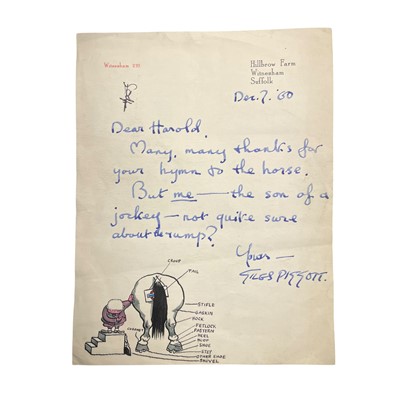 Witnesham 230
Hillbrow Farm
Witnesham
Suffolk
Dec. 7. '60
Dear Harold,
Many, many thanks for
your hymn to the horse.
But me — the son of a
jockey — not quite sure
about the rump?
Yours —
GILES PIGGOTT.
CROUP
TAIL
STIFLE
GASKIN
HOCK
FETLOCK
PASTERN
HEEL
HOOF
SHOE
STEP
OTHER SHOE
SHOVEL